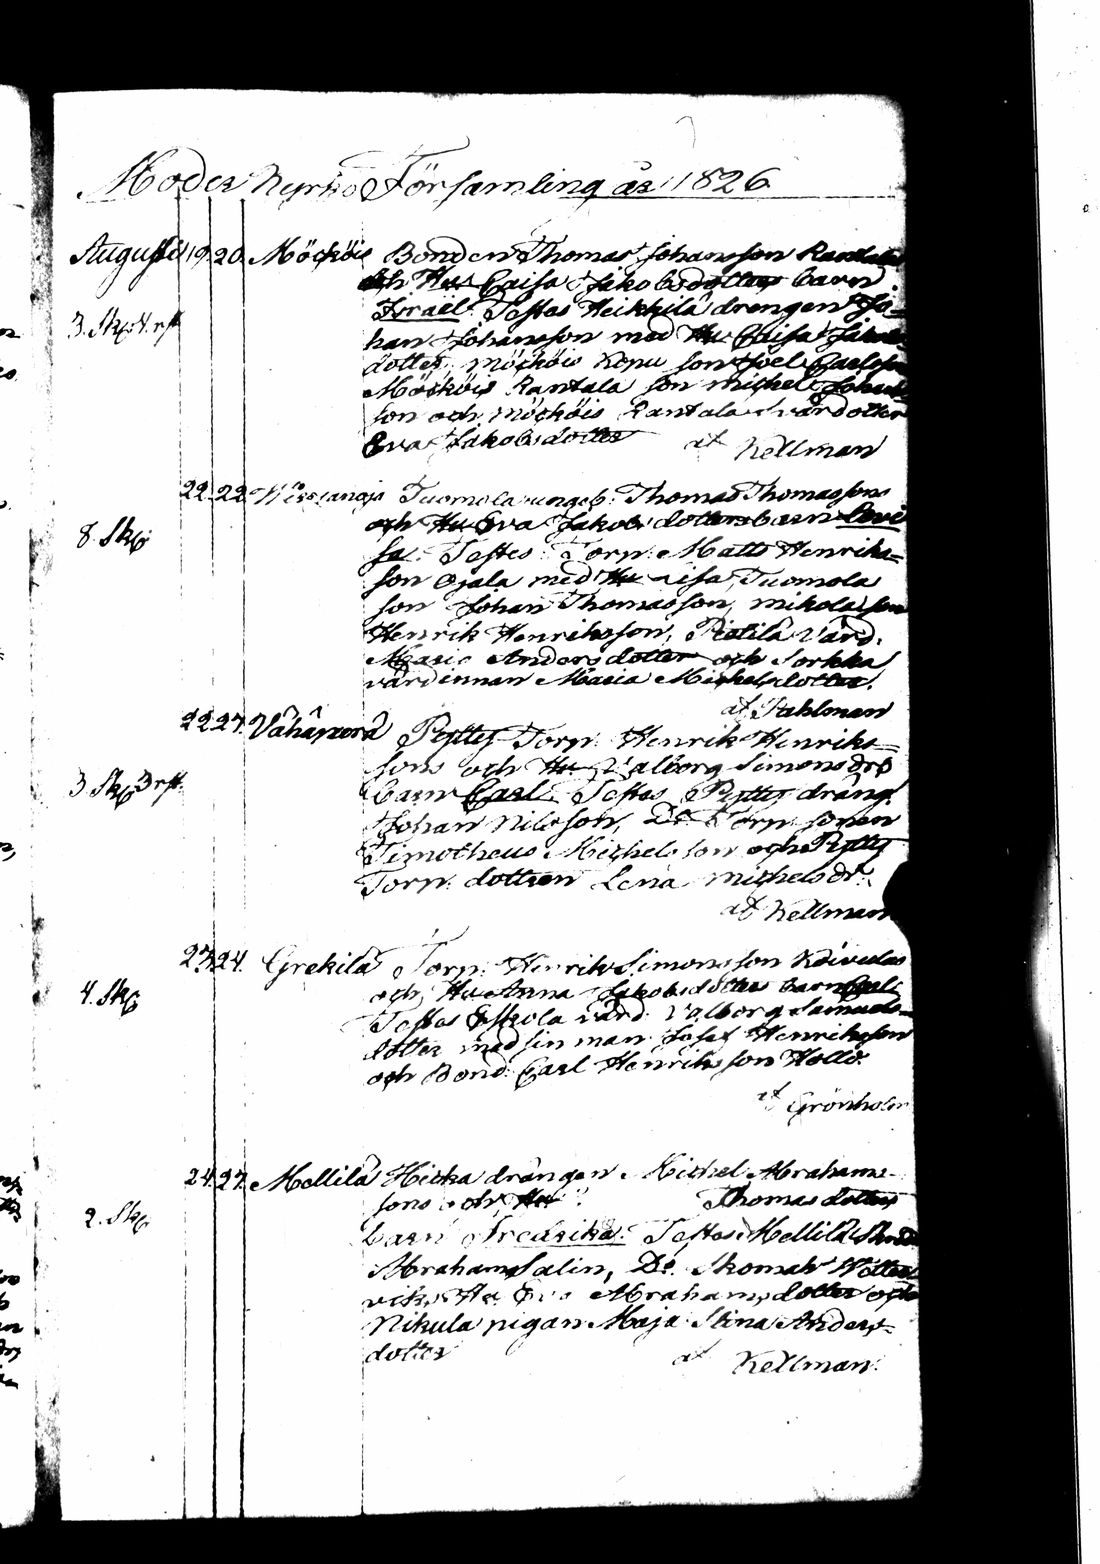 Moder Kyrko Församling år 1826
Augusti 19. 20. Möcköis Bonden Thomas Johansson Rantala
och Hu Caisa Jakobsdotters barn
Israel. Testes Heikkilä drengen Jo=
3. Skp 4. rst
han Johansson med Hu Caisa Jakobs
dotter, möcköis Kopu son Joel Carlsson
Möcköis Rantala son michel Johans
son och möcköis Rantala svärdotter
Eva Jakobsdotter af Kellman
22. 22. Tuomola ungeb: Thomas Thomassons
och Hu Eva Jakobsdotters barn Lovi
8. Skp
sa. Testes Torp: Matts Henriks=
son Ojala med Hu Tuomola
son Johan Thomasson, mikola son
Henrik Henriksson, Pietilä värd:
Maria Andersdotter och Sorkka
värdinnan Maria Michelsdotter.
af Pahlman
22 27. Vähäperä Pytty Torp: Henrik Henriks=
sons och Hu Valborg Simonsdrs
3 Skp 3 rst
barn Carl. Testes Pytty dräng
Johan Nilsson, Do Torp: sonen
Timotheus Michelsson och Pytty
Torp: dottren Lena michelsdr.
af Kellman
23. 24. Grekilä Torp: Henrik Simonsson Koivulas
och Hu Anna Jakobsdotters barn Carl
4. Skp
Testes Eskola värd: Valborg Samuels=
dotter med sin man Josef Henriksson
och Bond: Carl Henriksson Hollo.
af Grönholm
24. 27. Mellilä Hicka drängen Michel Abrahams=
sons och Hu Thomasdotters
2. Skp
barn Fredrika. Testes Mellilä
Abraham Salin, Do Skomak
vik, Hu Eva Abrahamsdotter och
Nikula pigan Maja Stina Anders=
dotter af Kellman.